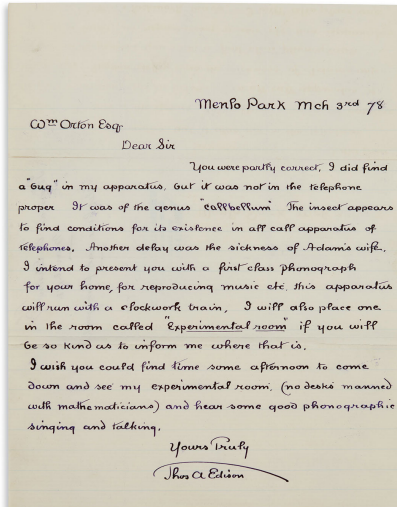 Menlo Park Mch 3rd 78
Wm Orton Esq.
Dear Sir
You were partly correct, I did find
a "bug" in my apparatus, but it was not in the telephone
proper It was of the genus "callbellum" The insect appears
to find conditions for its existence in all call apparatus of
telephones. Another delay was the sickness of Adams wife.
I intend to present you with a first class phonograph
for your home, for reproducing music etc. this apparatus
will run with a clockwork train, I will also place one
in the room called "Experimental room" if you will
be so kind as to inform me where that is.
I wish you could find time some afternoon to come
down and see my experimental room, (no desks manned
with mathematicians) and hear some good phonographic
singing and talking.
Yours Truly
Thos A Edison